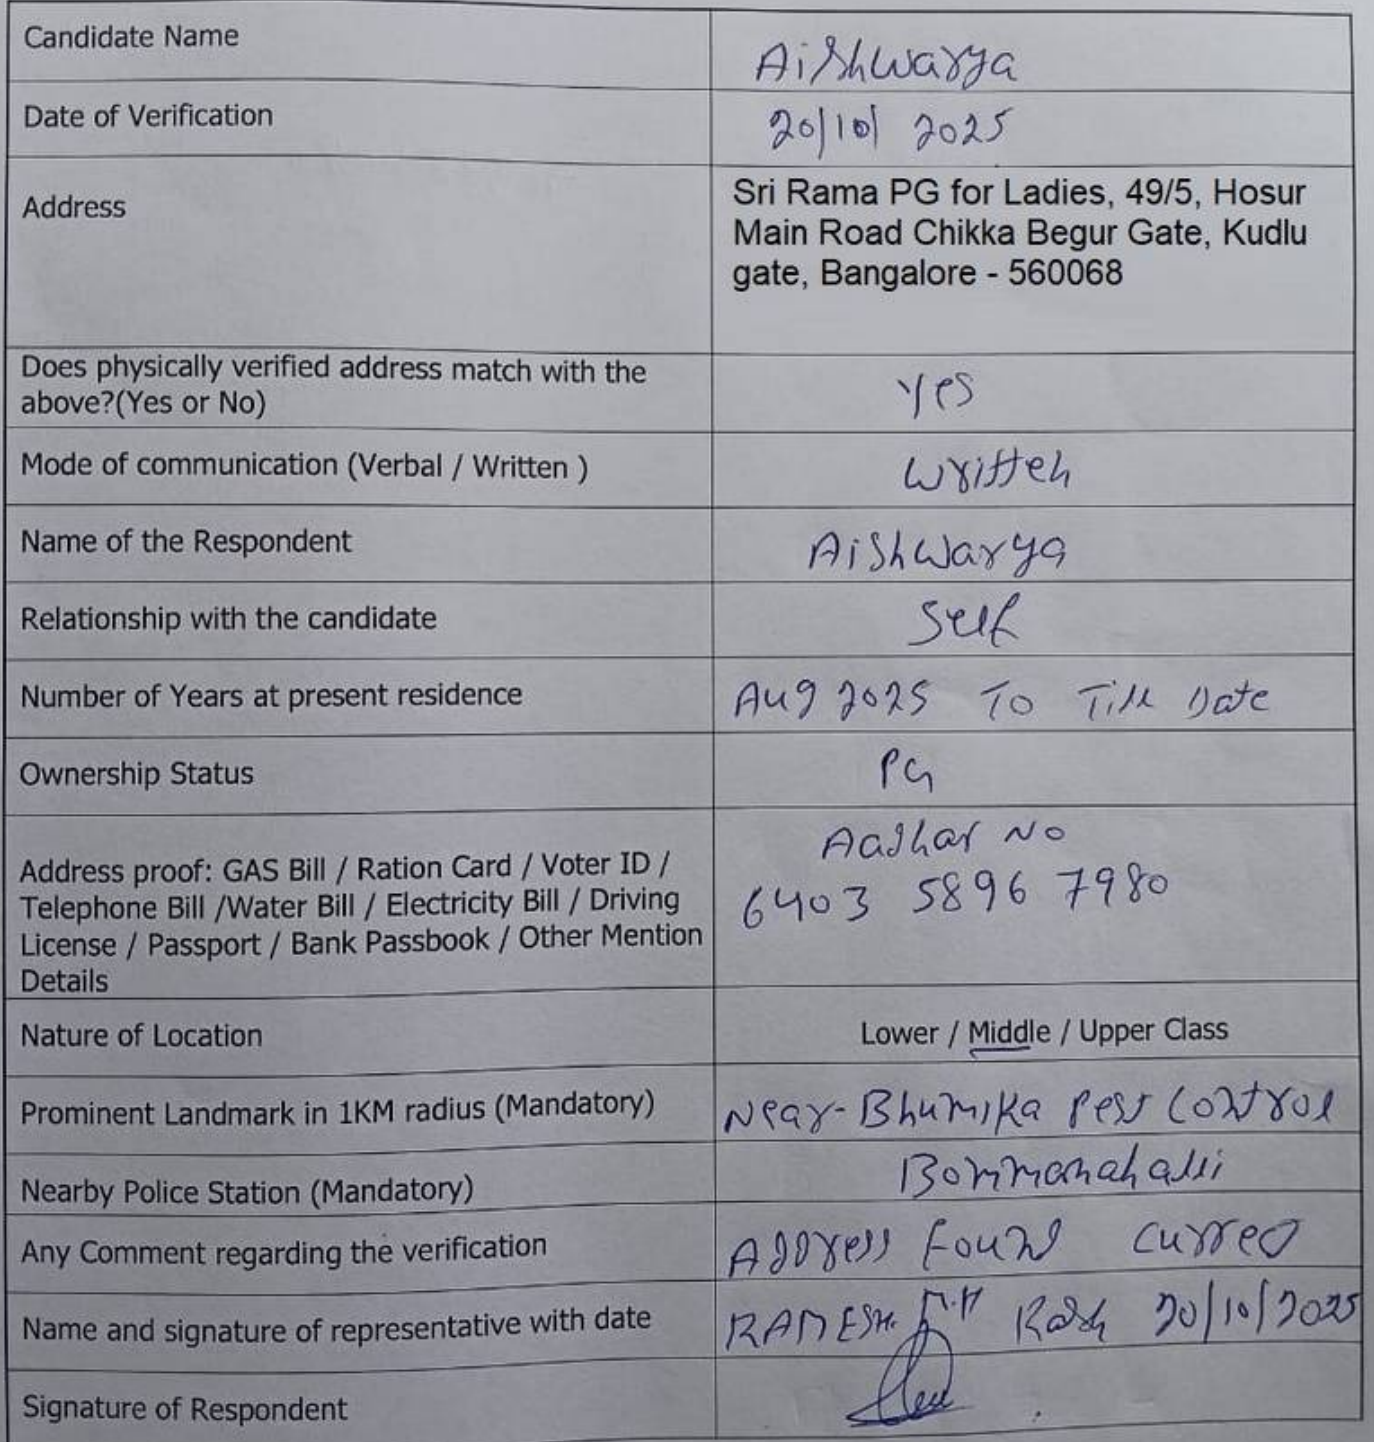 Candidate Name
Aishwarya
Date of Verification
20/10/ 2025
Address
Sri Rama PG for Ladies, 49/5, Hosur
Main Road Chikka Begur Gate, Kudlu
gate, Bangalore - 560068
Does physically verified address match with the
above?(Yes or No)
Yes
Mode of communication (Verbal / Written )
Written
Name of the Respondent
Aishwarya
Relationship with the candidate
Self
Number of Years at present residence
Aug 2025 To Till Date
Ownership Status
PG
Address proof: GAS Bill / Ration Card / Voter ID /
Telephone Bill /Water Bill / Electricity Bill / Driving
License / Passport / Bank Passbook / Other Mention
Details
Aadhar No
6403 5896 7980
Nature of Location
Lower / Middle / Upper Class
Prominent Landmark in 1KM radius (Mandatory)
Near-Bhumika Pest Control
Nearby Police Station (Mandatory)
Bommanahalli
Any Comment regarding the verification
Address Found
Name and signature of representative with date
RAMESH. 20/10/2025
Signature of Respondent